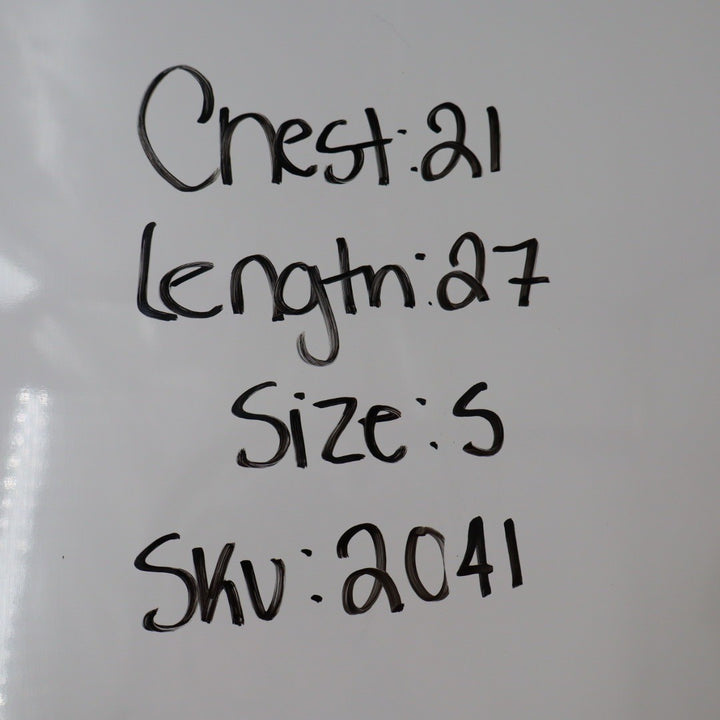 Chest:21
Length:27
Size:S
SKU:2041